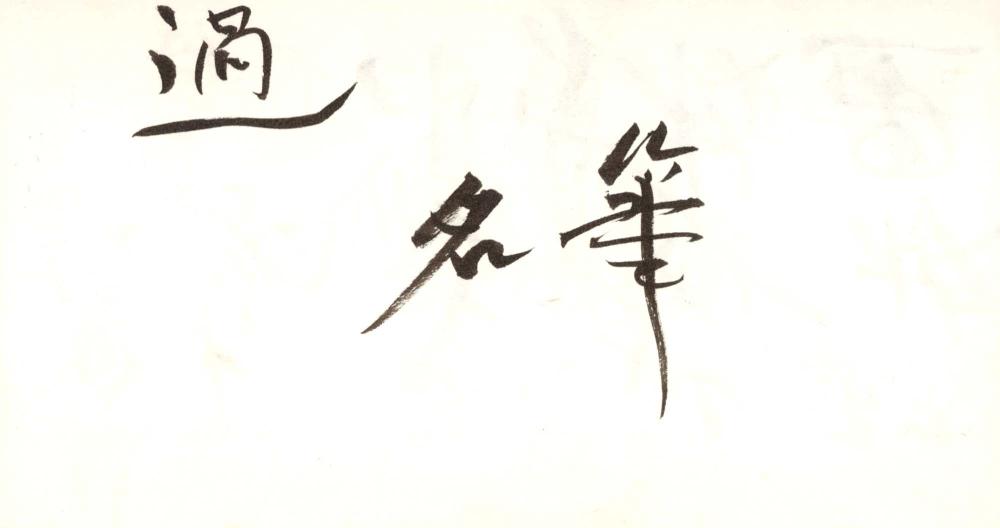 筆
名
過